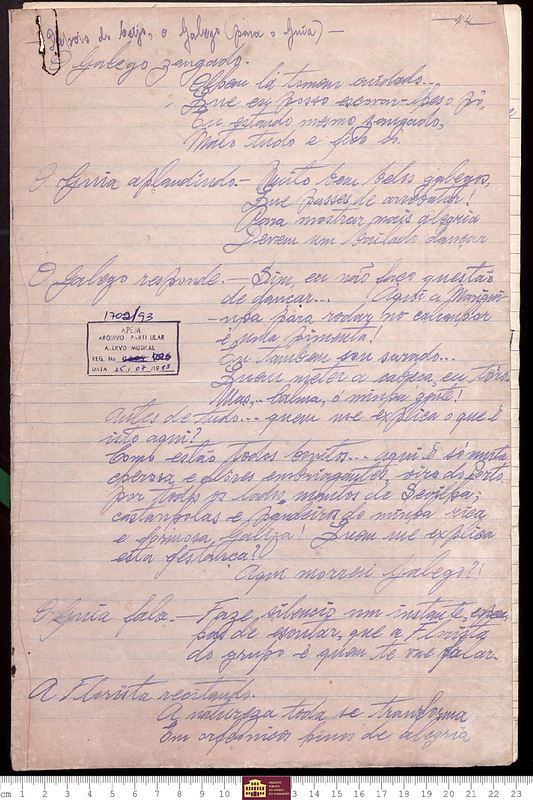 44
Depois do beijo, o Galego (para o Guia) —
O Galego zangado.
lá tomem cuidado...
Que eu posso escovar-lhes o pó,
Eu estando mesmo zangado,
Mato tudo e fico só.
O Guia aplaudindo — Muito bem belos galegos,
Que passes de arrebatar!
Para mostrar mais alegria
Devem um bailado dançar
O Galego responde. — Sim, eu não faço questão
de dançar... Aqui a Mariqui-
nha para rodar no calcanhar
é uma pimenta!
Eu tambem sou sarado...
Quem meter a cabeça, eu
Mas,.. calma, ó minha gente!
Antes de tudo... quem me explica o que é
isto aqui?
Como estão todos bonitos... aqui é só murta
cheirosa e flôres embriagantes, vira do Porto
por todos os lados, mantos de Sevilha;
castanholas e pandeiros da minha rica
e formosa Galiza! Quem me explica
esta festança?!
Aqui morreu Galego?!
O Guia fala. — Faze silencio um instante,
de escutar, que a Florista
do grupo é quem te vae falar.
A Florista recitando.
A natureza toda se transforma
Em hinos de alegria
1702/93
APEM
ARQUIVO PARTICULAR
ACERVO MUSICAL
REG. No
DATA 25/07/1993
cm 1 2 3 4 5 6 7 8 9 10 13 14 15 16 17 18 19 20 21 22 23
ARQUIVO PÚBLICO DO ESTADO DO MARANHÃO